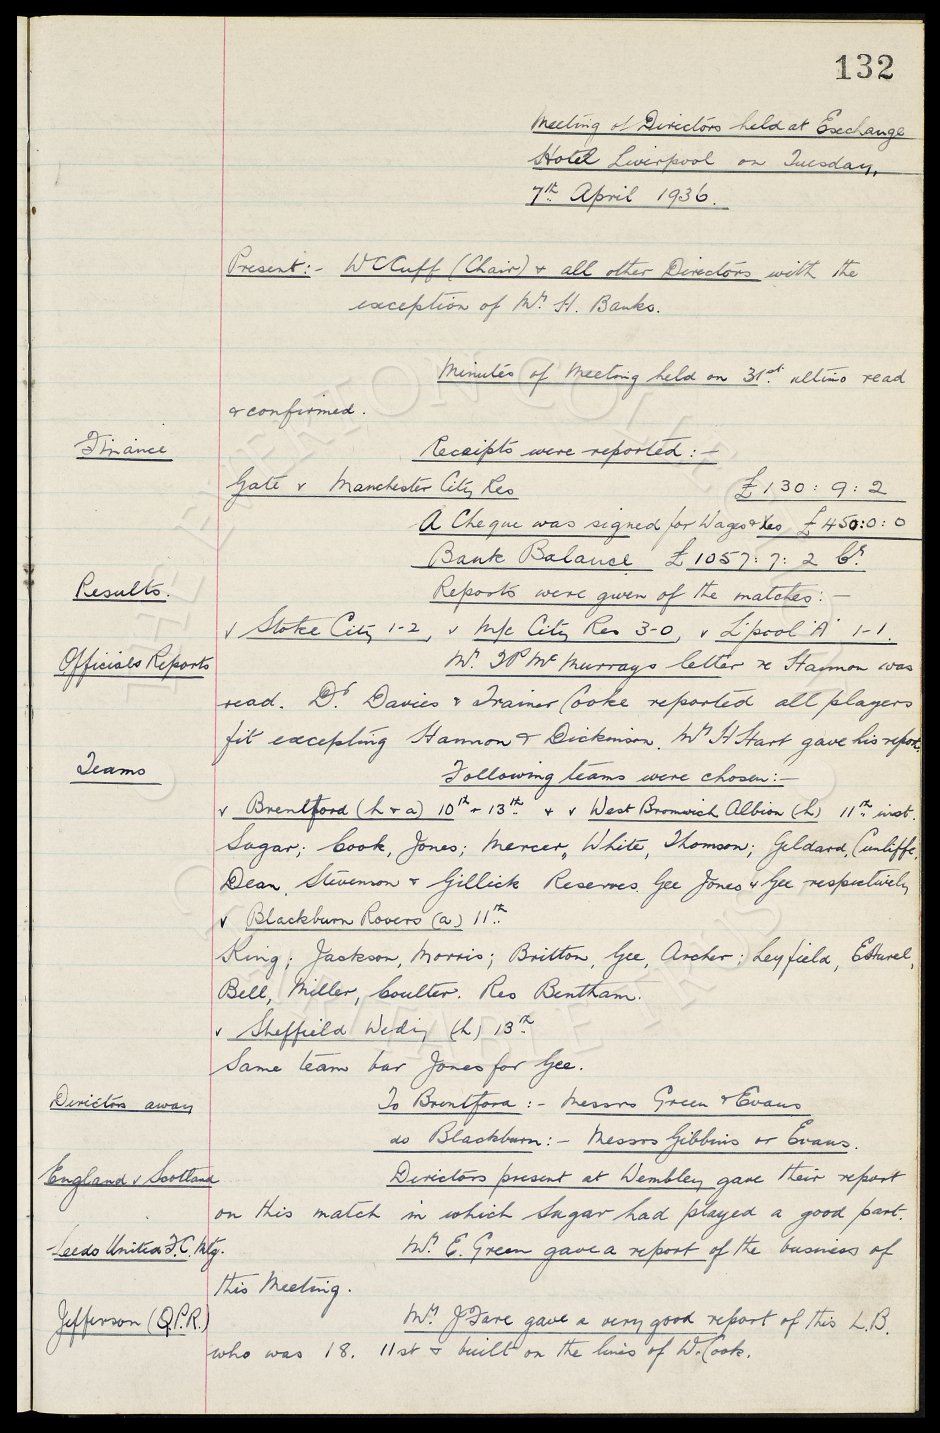 132
Meeting of Directors held at Exchange
Hotel Liverpool on Tuesday,
7th April 1936.
Present:- W C Cuff (Chair) & all other Directors with the
exception of Mr. H. Banks.
Minutes of Meeting held on 31st. ultimo read
& confirmed.
Finance Receipts were reported:-
Gate v Manchester City Res £130:9:2
A Cheque was signed for Wages & Xes £450:0:0
Bank Balance £1057:7:2 Cr.
Results. Reports were given of the matches:-
v Stoke City 1-2, v M/c City Res 3-0, v L'pool 'A' 1-1.
Officials Reports Mr. J P McMurrays letter re Hannon was
read. Dr. Davies & Trainer Cooke reported all players
fit excepting Hannon & Dickinson. Mr H Hart gave his report.
Teams Following teams were chosen:-
v Brentford (h & a) 10th & 13th. & v West Bromwich Albion (h) 11th. inst.
Sagar; Cook, Jones; Mercer, White, Thomson; Geldard, Cunliffe,
Dean, Stevenson & Gillick Reserves Gee Jones & Gee respectively
v Blackburn Rovers (a) 11th.
King; Jackson, Morris; Britton, Gee, Archer; Leyfield, E Hurel,
Bell, Miller, Coulter. Res Bentham.
v Sheffield Wed'y (h) 13th.
Same team bar Jones for Gee.
Directors away To Brentford:- Messrs Green & Evans
do Blackburn:- Messrs Gibbins or Evans.
England v Scotland Directors present at Wembley gave their report
on this match in which Sagar had played a good part.
Leeds United F.C. Mtg. Mr. E. Green gave a report of the business of
this Meeting.
Jefferson (Q.P.R.) Mr. J Fare gave a very good report of this L.B.
who was 18. 11st & built on the lines of W. Cook.
THE EVERTON COLLECTION
CHARITABLE TRUST